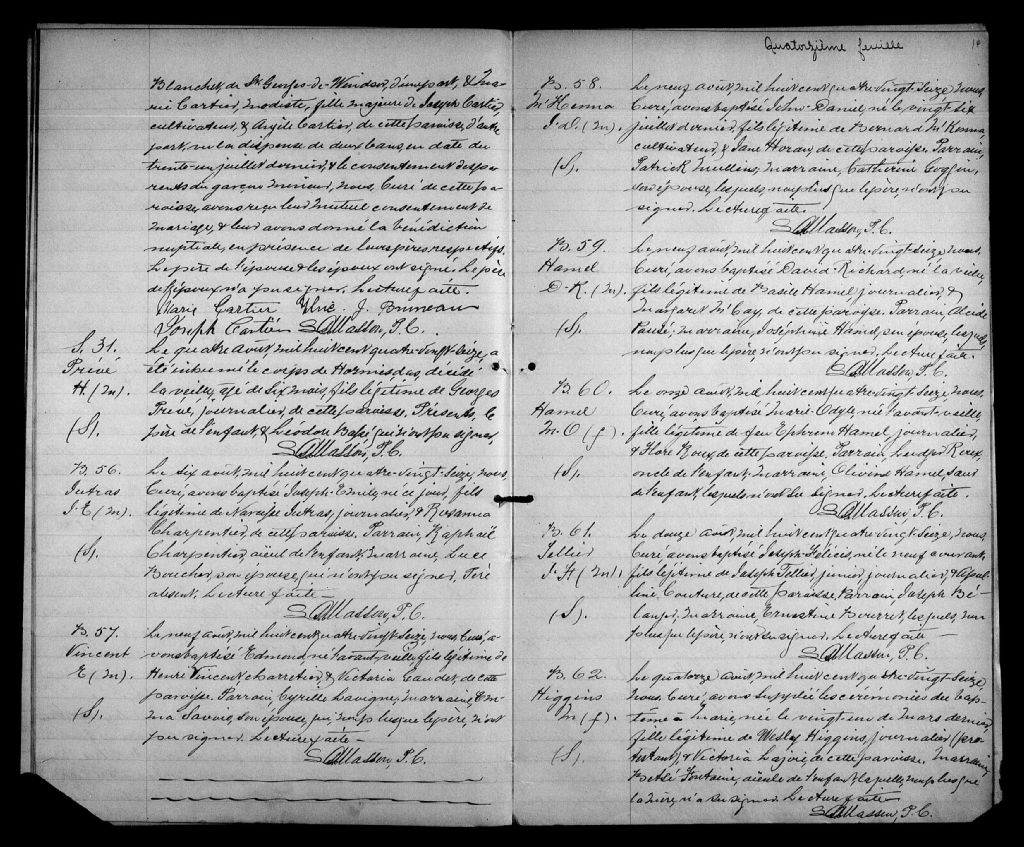 Quatorzième feuille
Blanchet, de St Georges-de-Windsor, d'une part, & Ma-
rie Cartier, modiste, fille majeure de Joseph Cartier,
cultivateur, & Argile Cartier, de cette paroisse, d'autre
part, vu la dispense de deux bans, en date du
trente-un juillet dernier, & le consentement des pa-
rents du garçon mineur, Nous, Curé de cette pa-
roisse, avons reçu leur mutuel consentement de
mariage, & leur avons donné la bénédiction
nuptiale, en présence de leurs pères respectifs.
Le père de l'épouse & les époux ont signé. Le père
de l'époux n'a pu signer. Lecture faite.
Marie Cartier J. Bruneau
Joseph Cartier Masson, P.C.
S. 31. Le quatre août mil huit cent quatre-vingt-seize, a
Prevé été inhumé le corps de Hormisdas, décédé
H. (m) la veille, agé de six mois, fils légitime de Georges
Prevé, journalier, de cette paroisse. Présents, le
(S). père de l'enfant, & qui n'ont pu signer.
Masson, P.C.
B. 56 Le six août mil huit cent quatre-vingt-seize, nous
Jutras Curé, avons baptisé Joseph-Emile, né ce jour, fils
J. E (m) légitime de Narcisse Jutras, journalier, & Rosanna
Charpentier, de cette paroisse. Parrain, Raphaël
(S). Charpentier, aïeul de l'enfant, marraine, Luce
Boucher, son épouse, qui n'ont pu signer. Père
absent. Lecture faite.
Masson, P.C.
B. 57. Le neuf août mil huit cent quatre-vingt-seize, nous Curé, a-
Vincent vons baptisé Edmond, né l'avant-veille, fils légitime de
E (m). Henri Vincent, charretier, & Victoria Gaudet, de cette
paroisse. Parrain, Cyrille Lavigne, marraine, Em-
(S). ma Savoie, son épouse, qui, non plus que le père, n'ont
pu signer. Lecture faite.
Masson, P.C.
B. 58. Le neuf août mil huit cent quatre-vingt-seize, nous,
McKenna Curé, avons baptisé John-Daniel, né le vingt-six
J. D. (m). juillet dernier, fils légitime de Bernard McKenna,
cultivateur, & Jane Horan, de cette paroisse. Parrain,
(S). Patrick Mullins, marraine, Catherine Goggin,
son épouse, lesquels, non plus que le père, n'ont pu
signer. Lecture faite.
Masson, P.C.
B. 59 Le neuf août mil huit cent quatre-vingt-seize, nous,
Hamel Curé, avons baptisé David-Richard, né la veille,
D-R. (m). fils légitime de Basile Hamel, journalier, &
Margaret McCay, de cette paroisse. Parrain, Alcide
(S). marraine, Joséphine Hamel, son épouse, lesquels,
non plus que le père, n'ont pu signer. Lecture faite.
Masson, P.C.
B. 60. Le onze août mil huit cent quatre-vingt-seize, nous
Hamel Curé, avons baptisé Marie-Odyle, née l'avant-veille
M. O (f). fille légitime de feu Ephrem Hamel, journalier,
& Flore Roux, de cette paroisse. Parrain, Roux,
(S). oncle de l'enfant, marraine, Olivine Hamel, soeur
de l'enfant, lesquels n'ont su signer. Lecture faite.
Masson, P.C.
B. 61. Le douze août mil huit cent quatre-vingt-seize, nous,
Tellier Curé, avons baptisé Joseph-Félicis, né le neuf courant,
J. F. (m). fils légitime de Joseph Tellier, junior, journalier, & Apoli-
line Couture, de cette paroisse. Parrain, Joseph Bé-
(S). langer, marraine, Ernestine Bourret, lesquels, non
plus que le père, n'ont su signer. Lecture faite.
Masson, P.C.
B. 62. Le quatorze août mil huit cent quatre-vingt-seize,
Higgins nous Curé, avons suppléé les cérémonies du bap-
M (f). tême à Marie, née le vingt-un de mars dernier,
fille légitime de Wesley Higgins, journalier (pro-
(S). testant), & Victoria Lajoie, de cette paroisse. Marraine,
Fontaine, aïeule de l'enfant, laquelle, non plus que
la mère, n'a su signer. Lecture faite
Masson, P.C.